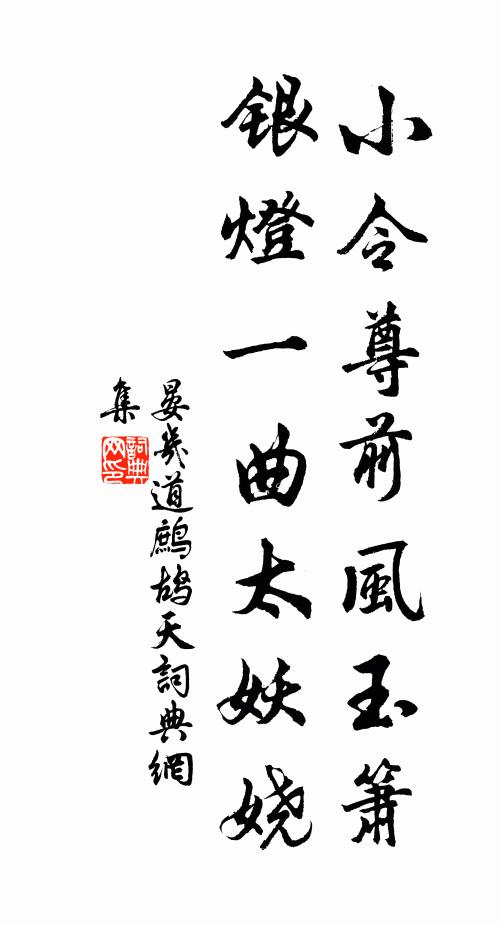 小令尊前風玉簫
銀燈一曲太妖娆
晏幾道鷓鴣天詞典網
集
詞典网印